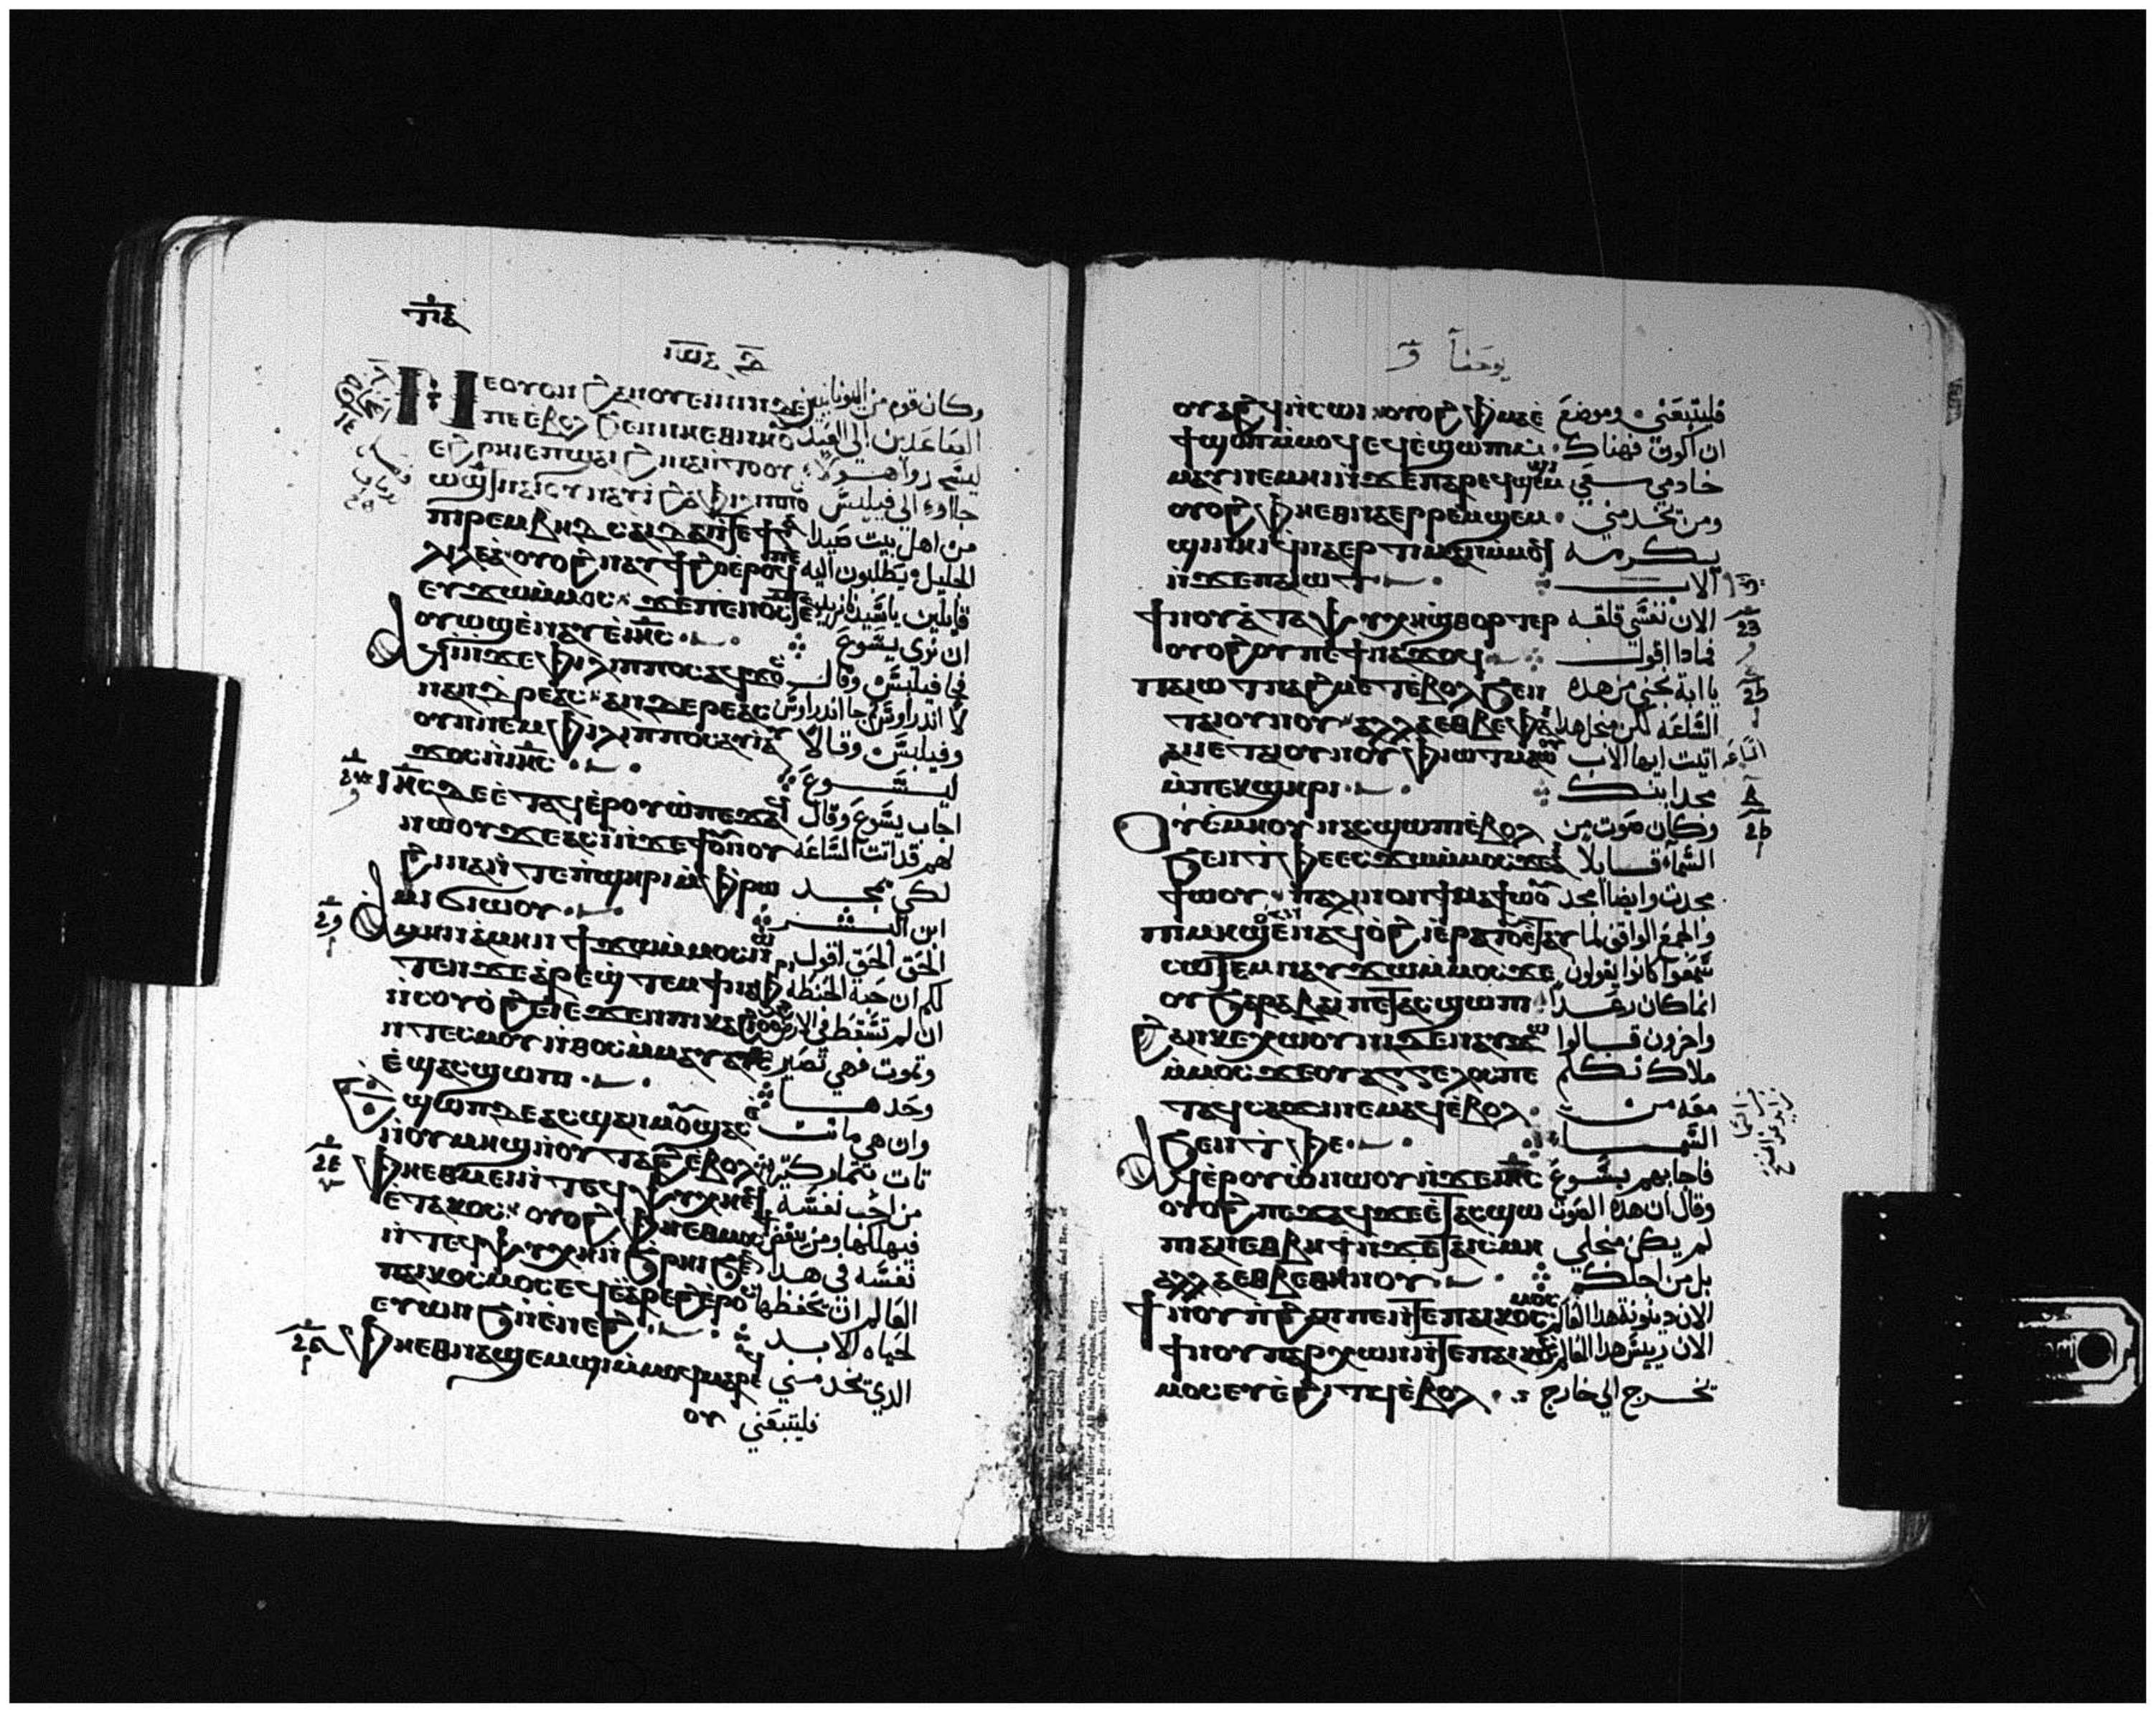 ⲓⲱⲁ
ⲛⲉⲟⲩⲟⲛ ϩⲁⲛⲟⲩⲉⲓⲛⲓⲛ ⲇⲉ وكان قوم من اليونانيين
ⲡⲉ ⲉⲃⲟⲗ ϧⲉⲛ ⲛⲏⲉⲑⲛⲏⲟⲩ الصاعدين الى العيد
ⲉϩⲣⲏⲓ ⲉⲡϣⲁⲓ ϩⲓⲛⲁ ⲛⲧⲟⲩⲟ ليسجدوا هولا
ⲫⲓⲗⲓⲡⲡⲟ جاوء الى فيليبس
ⲡⲓⲣⲉⲙⲃⲏⲇⲥⲁⲓⲇⲁ ⲛⲧⲉ ϯⲅⲁ من اهل بيت صيدا
ⲗⲓⲗⲉⲁ ⲟⲩⲟϩ ⲛⲁⲩϯϩⲟ ⲉⲣⲟϥ ⲡⲉ الجليل يطلبون اليه
ⲉⲩϫⲱ ⲙⲙⲟⲥ ϫⲉ ⲡⲉⲛⲟⲥ قايلين ياسيد نريد
ⲟⲩⲱϣ ⲉⲛⲁⲩ ⲉⲓⲏⲥ ان نري يسوع
ⲁϥⲓ ⲛϫⲉ ⲫⲓⲗⲓⲡⲡⲟⲥ ⲁϥϫⲟⲥ فجا فيليبس وقال
ⲛⲁⲛⲇⲣⲉⲁⲥ ⲁⲛⲇⲣⲉⲁⲥ لاندراوس جا اندراوس
ⲟⲛ ⲛⲉⲙ ⲫⲓⲗⲓⲡⲡⲟⲥ ⲁⲩⲓ ⲁⲩ وفيلبس وقالا
ϫⲟⲥ ⲛⲓⲏⲥ ليسوع
ⲓⲏⲥ ⲇⲉ ⲉⲧⲁϥⲉⲣⲟⲩⲱ ⲡⲉϫⲁϥ اجاب يسوع وقال
ⲛⲱⲟⲩ ϫⲉ ⲁⲥⲓ ⲛϫⲉ ϯⲟⲩⲛⲟⲩ لهم قد اتت الساعه
ϩⲓⲛⲁ ⲛⲧⲉ ⲡϣⲏⲣⲓ ⲙⲫⲣⲱ لكي يمجد
ⲙⲓ ϭⲓⲱⲟⲩ ابن البشر
ⲁⲙⲏⲛ ⲁⲙⲏⲛ ϯϫⲱ ⲙⲙⲟⲥ ⲛⲱ الحق الحق اقول
ⲧⲉⲛ ϫⲉ ⲁⲣⲉϣⲧⲉⲙ ϯⲛⲁⲫⲣⲓ لكم ان حبة الحنطة
ⲛⲥⲟⲩⲟ ϩⲉⲓ ⲉϫⲉⲛ ⲡⲓⲕⲁϩⲓ ان لم تسقط في الارض
ⲛⲧⲉⲥⲙⲟⲩ ⲛⲑⲟⲥ ⲙⲙⲁⲩⲁⲧⲥ وتموت فهي تصير
ⲉϣⲁⲥϣⲱⲡⲓ وحدها
ⲉϣⲱⲡ ⲇⲉ ⲁⲥϣⲁⲛⲙⲟⲩ ϣⲁⲥ وان هي ماتت
ⲛⲟⲩⲙⲏϣ ⲛⲟⲩⲧⲁϩ ⲉⲃⲟⲗ تات بثمار كثيره
ⲫⲏⲉⲑⲙⲉⲓ ⲛⲧⲉϥⲯⲩⲭⲏ من احب نفسه
ⲉⲧⲁⲕⲟⲥ ⲟⲩⲟϩ ⲫⲏⲉⲑⲙⲟⲥϯ فيهلكها ومن يبغض
ⲛⲧⲉϥⲯⲩⲭⲏ ⲛϧⲣⲏⲓ ϧⲉⲛ نفسه في هدا
ⲡⲁⲓⲕⲟⲥⲙⲟⲥ ⲉϥⲉⲁⲣⲉϩ ⲉⲣⲟⲥ العالم ان يحفظها
ⲉⲩⲱⲛϧ ⲛⲉⲛⲉϩ لحياه الابد
ⲫⲏⲉⲑⲛⲁϣⲉⲙϣⲓ ⲙⲙⲟⲓ ⲙⲁⲣⲉ الدي يخدمني
ⲟⲩ فليتبعني
يوحنا
ⲟⲩⲁϩϥ ⲛⲥⲱⲓ ⲟⲩⲟϩ ⲫⲙⲁ ⲉ فليتبعني وموضع
ϯϣⲟⲡ ⲙⲙⲟϥ ⲉϥⲉϣⲱⲡⲓ ان اكون فهناك
ⲙⲙⲁⲩ ⲛⲉⲙⲏⲓ ⲛϫⲉ ⲡⲁⲣⲉϥϣⲉⲙϣⲓ خادمي معي
ⲟⲩⲟϩ ⲫⲏⲉⲑⲛⲁⲉⲣⲣⲉⲙϣⲉⲙ ومن يخدمني
ϣⲓ ⲛⲏⲓ ϥⲛⲁⲉⲣⲧⲓⲙⲁⲛ ⲙⲙⲟϥ يكرمه
ⲛϫⲉ ⲡⲁⲓⲱⲧ الاب
ϯⲛⲟⲩ ⲁ ⲧⲁⲯⲩⲭⲏ ϣⲑⲟⲣⲧⲉⲣ الان نفسي قلقه
ⲟⲩⲟϩ ⲟⲩ ⲡⲉ ϯⲛⲁϫⲟϥ فمادا اقول
ⲡⲁⲓⲱⲧ ⲛⲁϩⲙⲉⲧ ⲉⲃⲟⲗ ϧⲉⲛ يا ابة نجني من هده
ⲧⲁⲓⲟⲩⲛⲟⲩ ⲁⲗⲗⲁ ⲉⲑⲃⲉ ⲫⲁⲓ الساعه لكن من اجل هدا
ⲁⲓⲓ ⲉⲧⲁⲓⲟⲩⲛⲟⲩ ⲫⲓⲱⲧ ⲙⲁⲱⲟⲩ اتيت ايها الاب
ⲙⲡⲉⲕϣⲏⲣⲓ مجد ابنك
ⲟⲩⲥⲙⲏ ⲟⲩⲛ ⲁⲥϣⲱⲡⲓ ⲉⲃⲟⲗ وكان صوت من
ϧⲉⲛ ⲧⲫⲉ ⲉⲥϫⲱ ⲙⲙⲟⲥ ϫⲉ السماء قايلا
ϯⲱⲟⲩ ⲡⲁⲗⲓⲛ ⲟⲛ ϯⲛⲁϯⲱⲟⲩ مجدت وايضا امجد
ⲡⲓⲙⲏϣ ⲉⲛⲁϥⲟϩⲓ ⲉⲣⲁⲧϥ ⲉⲧⲁⲩ والجمع الواقف لما
ⲥⲱⲧⲉⲙ ⲛⲁⲩϫⲱ ⲙⲙⲟⲥ ϫⲉ سمعوا كانوا يقولون
ⲟⲩϧⲁⲣⲁⲃⲁⲓ ⲡⲉⲧⲁⲥϣⲱⲡⲓ انما كان رعدا
ϩⲁⲛⲕⲉⲭⲱⲟⲩⲛⲓ ⲇⲉ ⲛⲁⲩϫⲱ واخرون قالوا
ⲙⲙⲟⲥ ϫⲉ ⲟⲩⲁⲅⲅⲉⲗⲟⲥ ⲡⲉ ملاك تكلم
ⲧⲁϥⲥⲁϫⲓ ⲛⲉⲙⲁϥ ⲉⲃⲟⲗ معه من
ϧⲉⲛ ⲧⲫⲉ السما
ⲁϥⲉⲣⲟⲩⲱ ⲛⲱⲟⲩ ⲛϫⲉ ⲓⲏⲥ فاجابهم يسوع
ⲟⲩⲟϩ ⲡⲉϫⲁϥ ϫⲉ ⲉⲧⲁⲥϣⲱ وقال ان هدا الصوت
ⲡⲓ ⲁⲛ ⲉⲑⲃⲏⲧ ⲛϫⲉ ⲧⲁⲓⲥⲙⲏ لم يكن من اجلي
ⲁⲗⲗⲁ ⲉⲑⲃⲉⲑⲏⲛⲟⲩ بل من اجلكم
ϯⲛⲟⲩ ⲡϩⲁⲡ ⲡⲉ ⲛⲧⲉ ⲡⲁⲓⲕⲟⲥⲙⲟⲥ الان دينونة هدا العالم
ϯⲛⲟⲩ ⲡⲁⲣⲭⲱⲛ ⲛⲧⲉ ⲡⲁⲓⲕⲟⲥ الان رييس هدا العالم
ⲙⲟⲥ ⲉⲩⲉϩⲓⲧϥ ⲉⲃⲟⲗ يخرج الي خارج